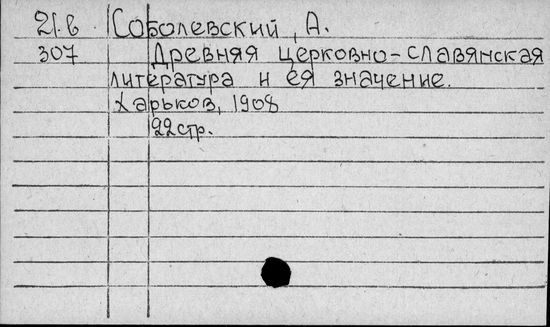 21.в Соболевский, А.
307 Древняя церковно-славянская
литература и ея значение.
Харьков, 1908
22стр.